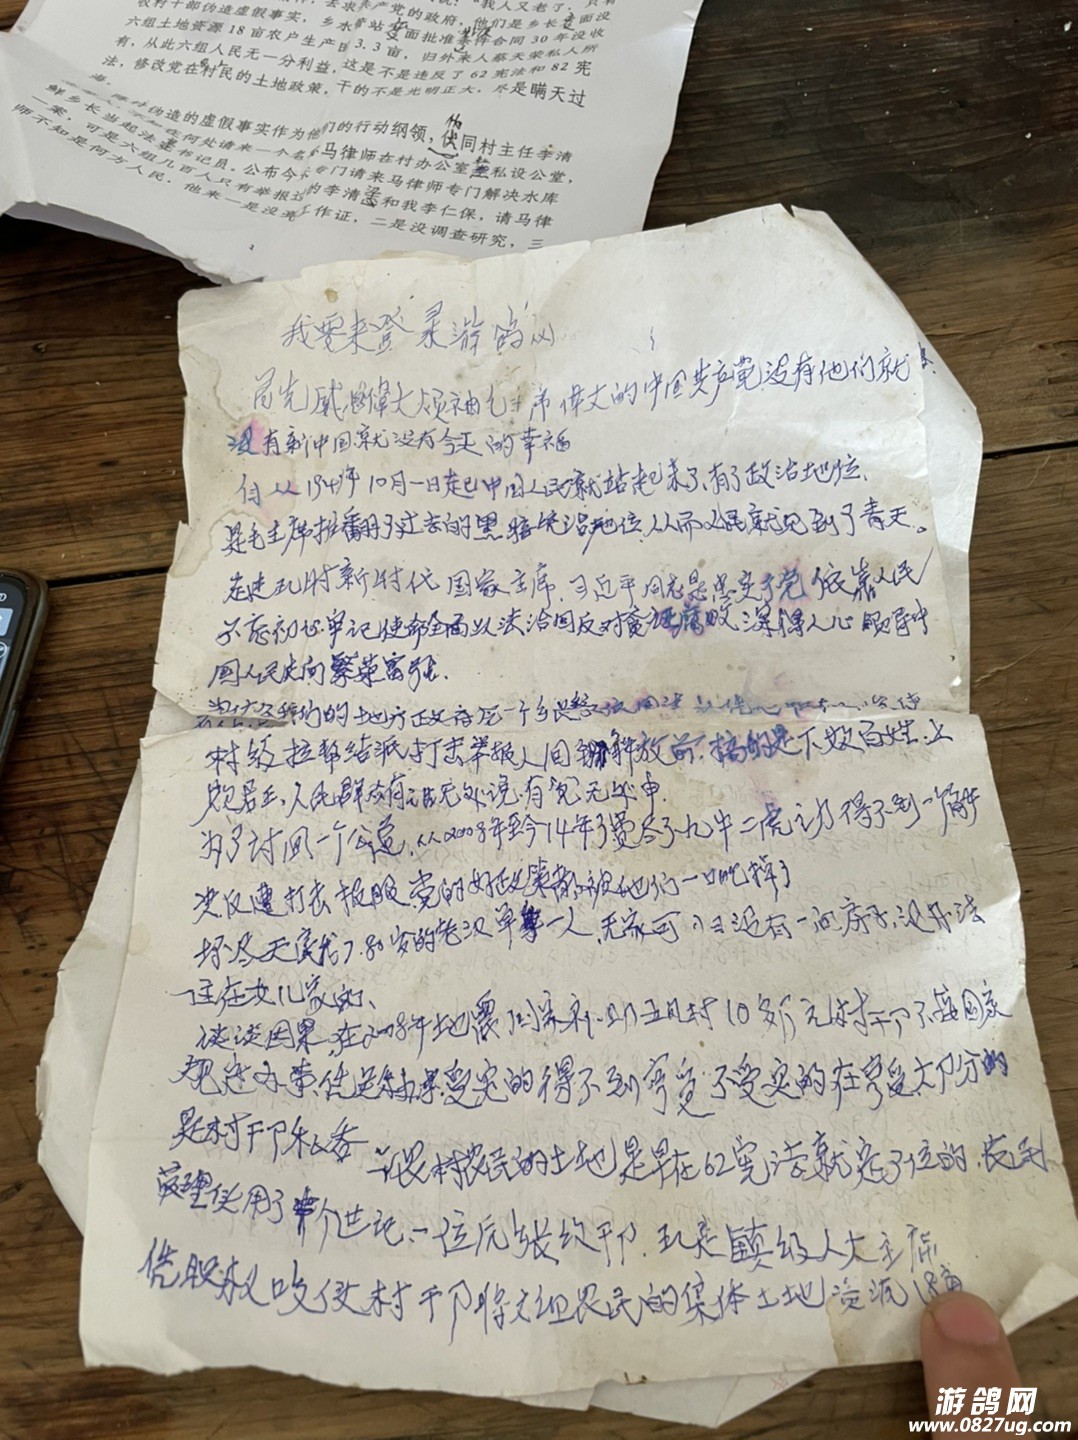 我又老了，只有
去求共产党的政府，他们是乡长支面没
收村干部伪造虚假事实，乡水管站支面批准条件合同30年没收
六组土地资源18亩农户生产田3.3亩，归外来人蔡天荣私人所
有，从此六组人民无一分利益，这是不是违反了62宪法和82宪
法，修改党在村民的土地政策，干的不是光明正大，尽是瞒天过
海，
伪造的虚假事实作为他们的行动纲领，伙同村主任李清
何处请来一个名 马律师在村办公室 私设公堂，
鲜乡长当起法 书记员，公布今 专门请来马律师专门解决水库
一案，可是六组几百人只有举报 的李清梁和我李仁保，请马律
师不知是何方人民，他来一是没 工作证，二是没调查研究，三
我要来登录游鸽网
首先感恩偉大领袖毛主席偉大的中国共产党，没有他们就
没有新中国就没有今天的幸福
自从1949年10月一日起中国人民就站起来了，有了政治地位，
是毛主席推翻了过去的黑暗统治地位，从而人民就见到了青天。
走进 新时代国家主席习近平同志是忠实于党依靠人民
不忘初心牢记使命全面以法治国反对贪污腐败深得人心领导中
国人民走向繁荣富强。
我们的地方政府 一个乡长
村级拉帮结派打击举报人回到解放前，搞的是下欺百姓，上
欺君王，人民群众有话无处说，有冤无处申
为了讨回一个公道，从2008年至今14年了费尽了九牛二虎之力得不到一 解
决反遭打击报服，党的好政策都被他们一口吃掉了
我7.80岁的老汉单 一人，无家可归没有一间房子，没办法
住在女儿家的、
谈谈因果，在2008年地震国家补助五月村10多万元村干部不按国家
规定办事， 受灾的得不到享受，不受灾的在享受，大部分的
是村干部私吞
农村农民的土地是早在62宪法就定了位的，农民
管理使用了半个世纪，一位元 干部，现是镇级人大主席
凭职权 使村干部将六组农民的集体土地资源18亩
游鸽网
www.0827ug.com